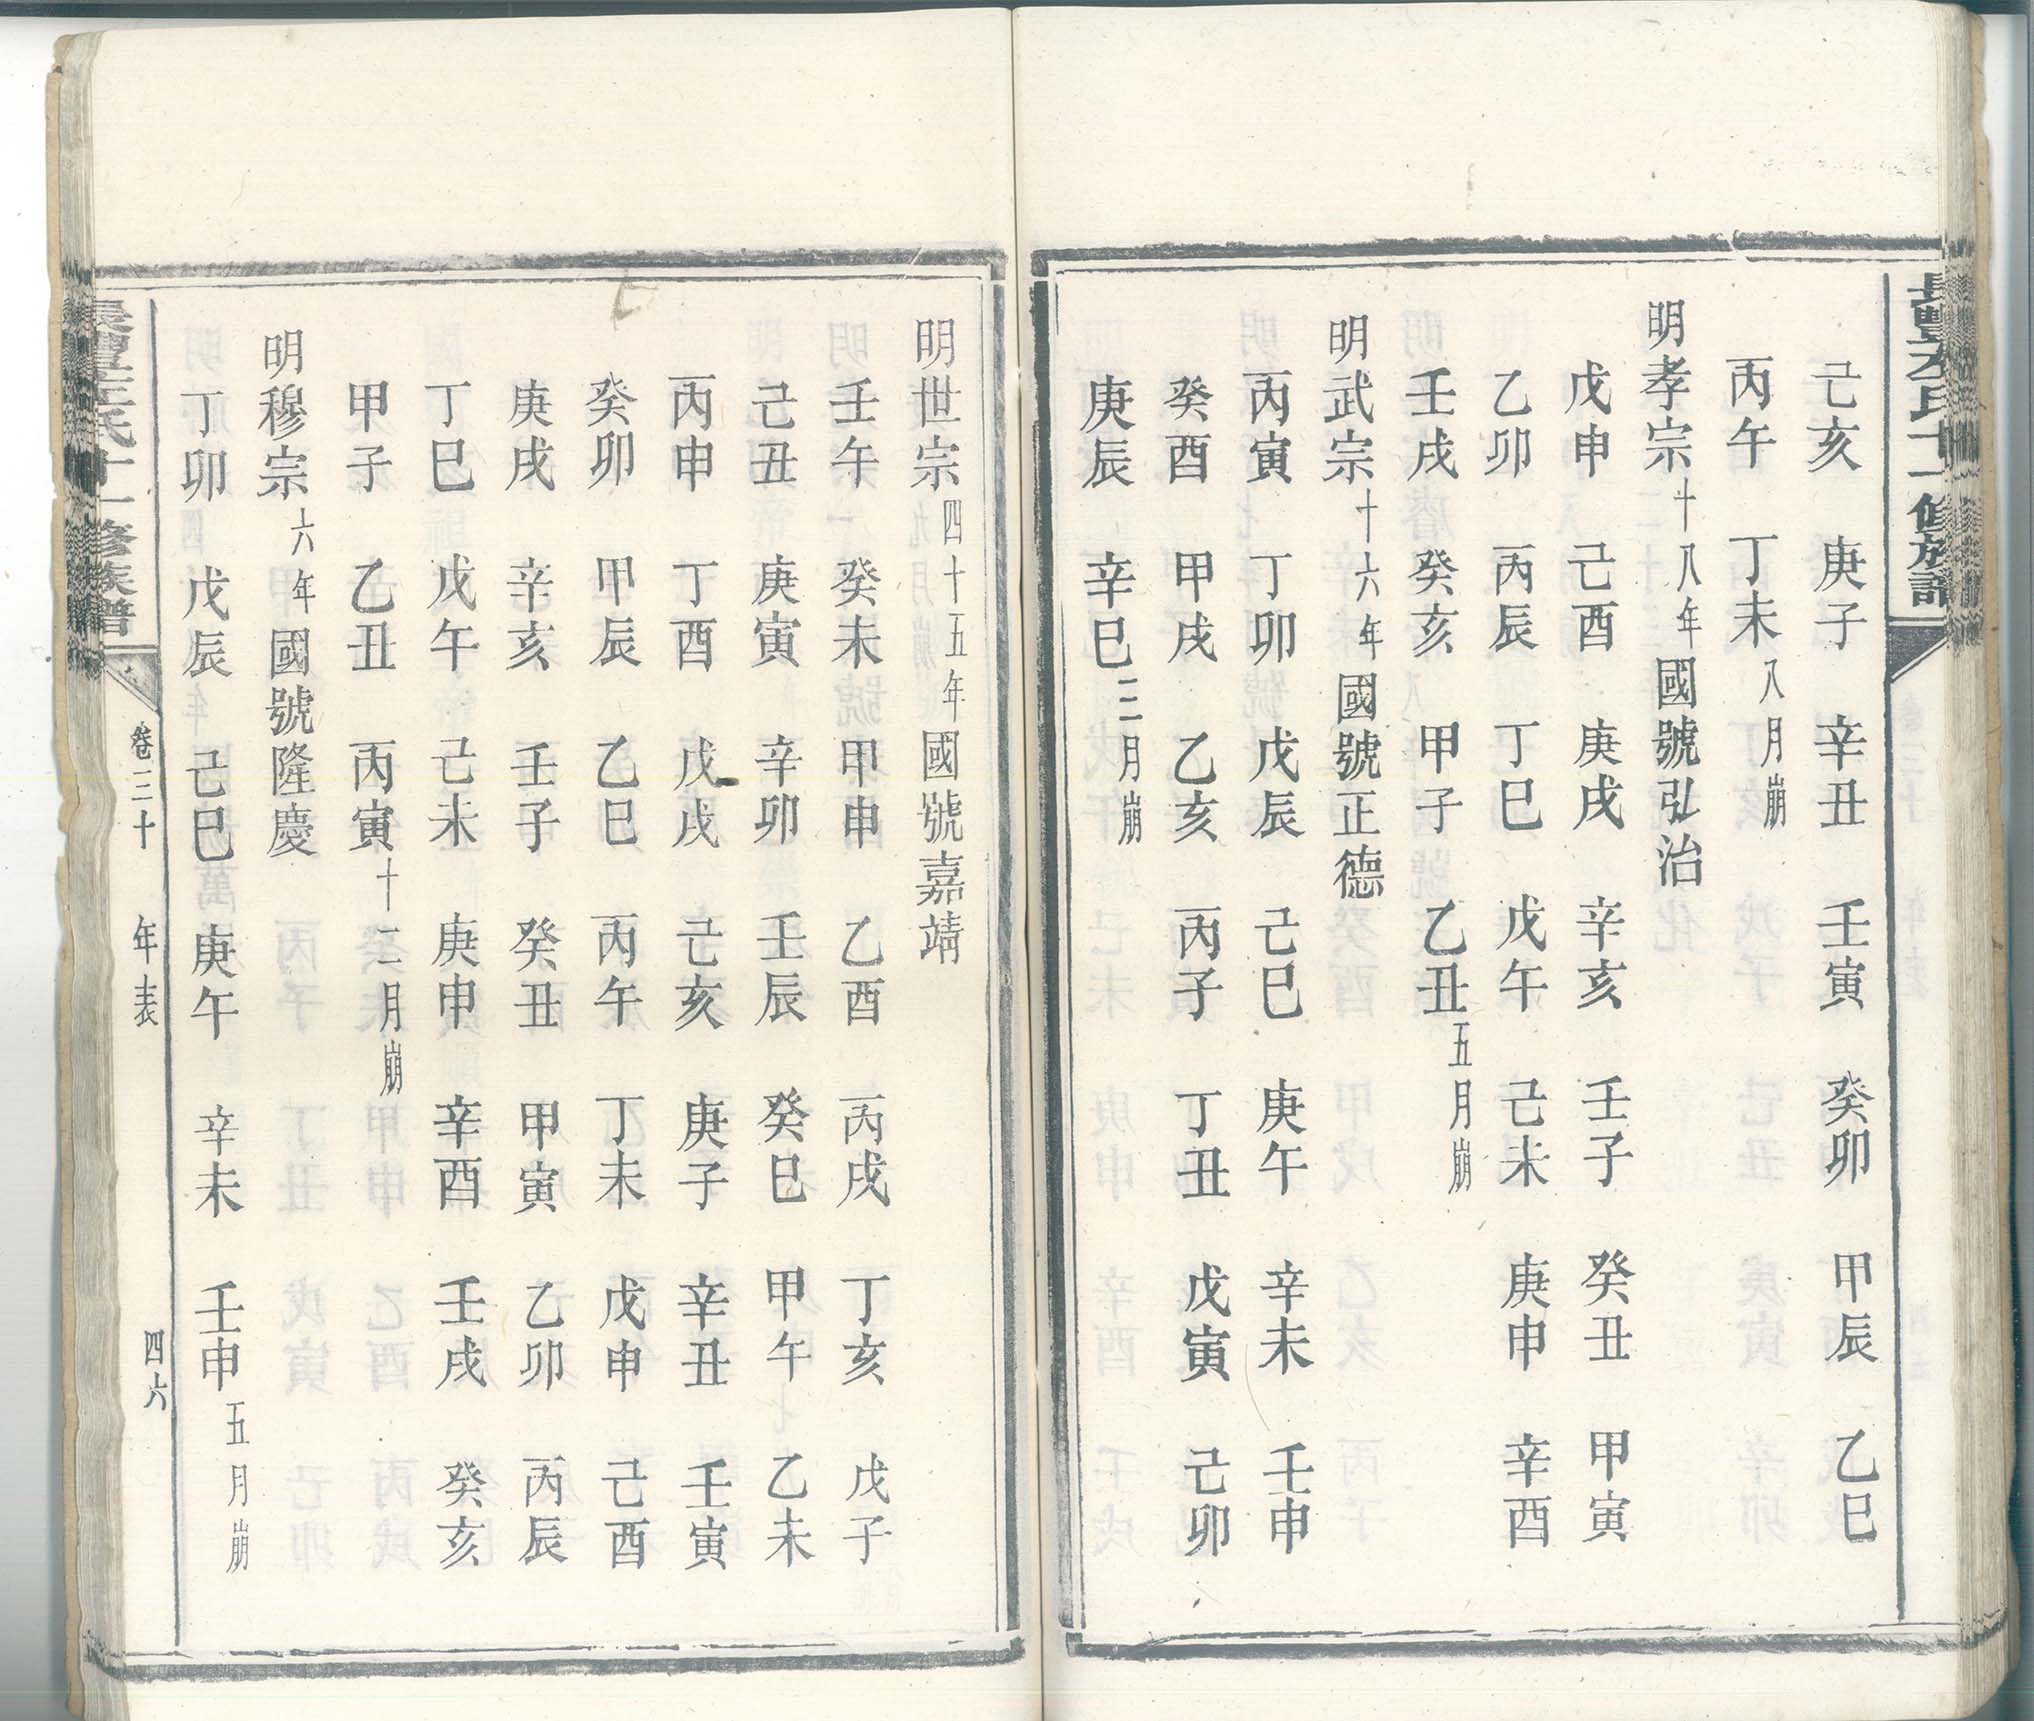 己亥 庚子 辛丑 壬寅 癸卯 甲辰 乙巳
丙午 丁未八月崩
明孝宗十八年國號弘治
戊申 己酉 庚戌 辛亥 壬子 癸丑 甲寅
乙卯 丙辰 丁巳 戊午 己未 庚申 辛酉
壬戌 癸亥 甲子 乙丑五月崩
明武宗十六年國號正德
丙寅 丁卯 戊辰 己巳 庚午 辛未 壬申
癸酉 甲戌 乙亥 丙子 丁丑 戊寅 己卯
庚辰 辛巳三月崩
明世宗四十五年國號嘉靖
壬午 癸未 甲申 乙酉 丙戌 丁亥 戊子
己丑 庚寅 辛卯 壬辰 癸巳 甲午 乙未
丙申 丁酉 戊戌 己亥 庚子 辛丑 壬寅
癸卯 甲辰 乙巳 丙午 丁未 戊申 己酉
庚戌 辛亥 壬子 癸丑 甲寅 乙卯 丙辰
丁巳 戊午 己未 庚申 辛酉 壬戌 癸亥
甲子 乙丑 丙寅十二月崩
明穆宗六年國號隆慶
丁卯 戊辰 己巳 庚午 辛未 壬申五月崩
氏十一修族譜 卷三十 年表 四六